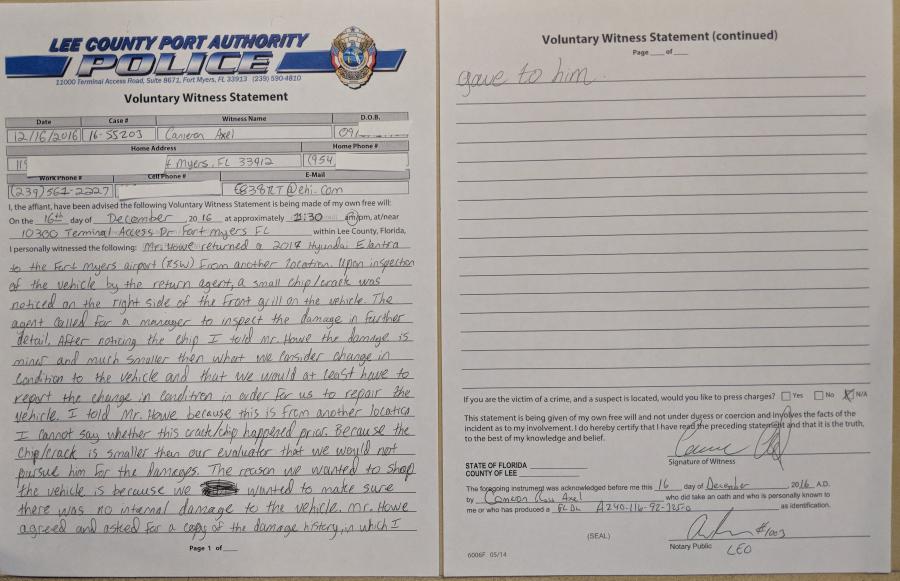 LEE COUNTY PORT AUTHORITY
POLICE
11000 Terminal Access Road, Suite 8671, Fort Myers, FL 33913 (239) 590-4810
Voluntary Witness Statement
Date Case # Witness Name D.O.B.
12/16/2016 16-55203 Cameron Axel 09/
Home Address Home Phone #
Myers, FL 33912 (954
Work Phone # Cell Phone # E-Mail
(239) 561-2227 E838RT@ehi.com
I, the affiant, have been advised the following Voluntary Witness Statement is being made of my own free will:
On the 16th day of December 20 16 at approximately 1:30 am/pm, at/near
10300 Terminal Access Dr Fort myers FL within Lee County, Florida,
I personally witnessed the following: Mr. Howe returned a 2017 Hyundai Elantra
to the Fort Myers airport (RSW) From another location. Upon inspection
of the vehicle by the return agent, a small chip/crack was
noticed on the right side of the front grill on the vehicle. The
agent called for a manager to inspect the damage in further
detail. After noticing the chip I told Mr. Howe the damage is
minor and much smaller then what we consider change in
condition to the vehicle and that we would at least have to
report the change in condition in order for us to repair the
vehicle. I told Mr. Howe because this is from another location
I cannot say whether this crack/chip happened prior. Because the
chip/crack is smaller than our evaluater that we would not
pursue him for the damages. The reason we wanted to shop
the vehicle is because we wanted to make sure
there was no internal damage to the vehicle. Mr. Howe
agreed and asked for a copy of the damage history, in which I
Page 1 of
Voluntary Witness Statement (continued)
Page of
gave to him.
If you are the victim of a crime, and a suspect is located, would you like to press charges? Yes No N/A
This statement is being given of my own free will and not under duress or coercion and involves the facts of the
incident as to my involvement. I do hereby certify that I have read the preceding statement and that it is the truth,
to the best of my knowledge and belief.
Signature of Witness
STATE OF FLORIDA
COUNTY OF LEE
The foregoing instrument was acknowledged before me this 16 day of December, 2016 A.D.
by Cameron Ross Axel who did take an oath and who is personally known to
me or who has produced a FLDL as identification.
#1003
(SEAL)
Notary Public LEO
6006F 05/14